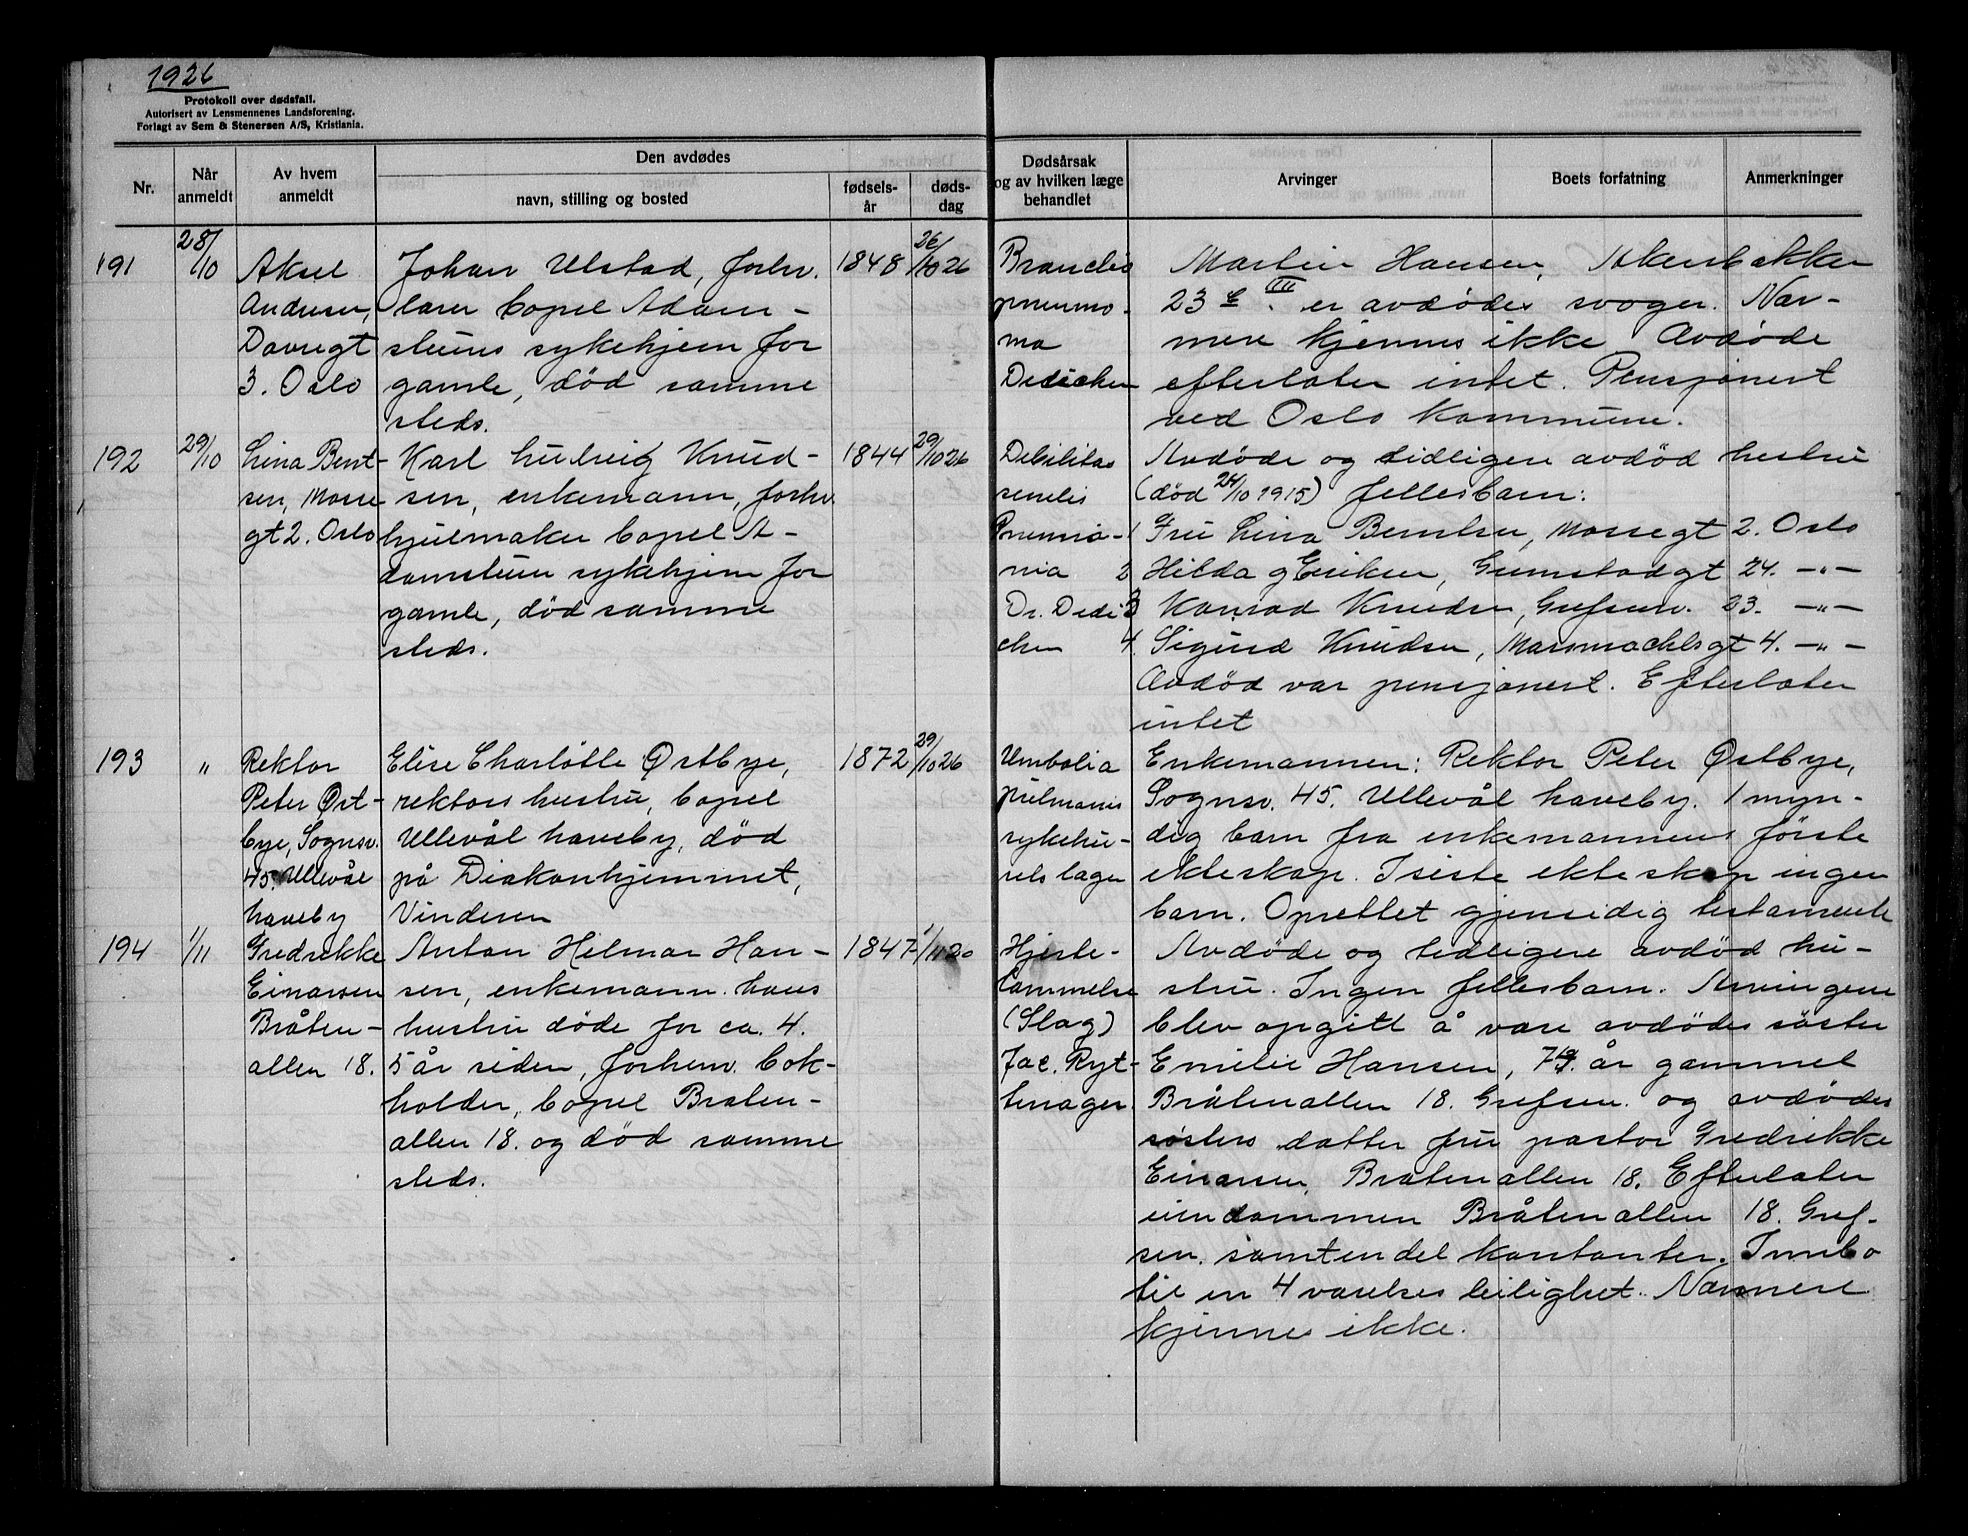 1926
Protokoll over dødsfall.
Autorisert av Lensmennenes Landsforening.
Forlagt av Sem & Stenersen A/S, Kristiania.
Nr.
Når anmeldt
Av hvem anmeldt
Den avdødes
navn, stilling og bosted
fødsels-år
døds-dag
Dødsårsak og av hvilken læge behandlet
Arvinger
Boets forfatning
Anmerkninger
191
28/10
Aksel
Andresen,
3. Oslo
Johan Ulstad, forhv.
lærer bopel Adam-
stuens sykehjem for
gamle, død samme
steds.
1848
26/10 26
Broncho
pneumo-
nia
Dedichen
Martin Hansen, Akersbakken
23 III. er avdødes svoger. Nær-
mere kjennes ikke Avdøde
efterlater intet. Pensjonert
ved Oslo kommune.
192
29/10
Lina Bent-
sen, Mosse
gt 2. Oslo
Karl Ludvig Knud-
sen, enkemann, forhv.
hjulmaker bopel A-
damstuen sykehjem for
gamle, død samme
steds.
1844
29/10 26
Debilitas
senilis
Pneumo-
nia
Dr. Dedi
chen
Avdøde og tidligere avdød hustru
(død 24/10 1915) fellesbarn:
1 Fru Lina Bentsen, Mossegt 2. Oslo
2 Hilda Eriksen, Grimstadgt 24. -"-
3 Konrad Knudsen, Grefsenv. 23. -"-
4. Sigurd Knudsen, 4. -"-
Avdød var pensjonert. Efterlater
intet
193
"
Rektor
Peter Øst-
bye, Sognsv.
45. Ullevål
haveby
Elise Charlotte Østbye,
rektors hustru, bopel
Ullevål haveby, død
på Diakonhjemmet,
Vinderen
1872
29/10 26
Embolia
pulmonis
sykehu-
sets læge
Enkemannen: Rektor Peter Østbye,
Sognsv. 45. Ullevål haveby. 1 myn-
dig barn fra enkemannens første
ekteskap. I siste ekteskap ingen
barn. Oprettet gjensidig testamente
194
1/11
Fredrikke
Einarsen
Bråten-
allen 18.
Anton Hilmar Han-
sen, enkemann. hans
hustru døde for ca. 4.
5 år siden, forhenv. bok-
holder, bopel Bråten-
allen 18. og død samme
steds.
1847
1/11 26
Hjerte-
lammelse
(Slag)
Jac. Ryt-
terager
Avdøde og tidligere avdød hu-
stru. Ingen fellesbarn. Arvingene
blev opgitt å være avdødes søster
Emilie Hansen, år gammel
Bråtenallen 18. Grefsen. og avdødes
søsters datter fru pastor Fredrikke
Einarsen, Bråtenallen 18. Efterlater
eiendommen Bråtenallen 18. Gref-
sen. samt en del kontanter. Innbo
til en 4 værelses leilighet. Nærmere
kjennes ikke.